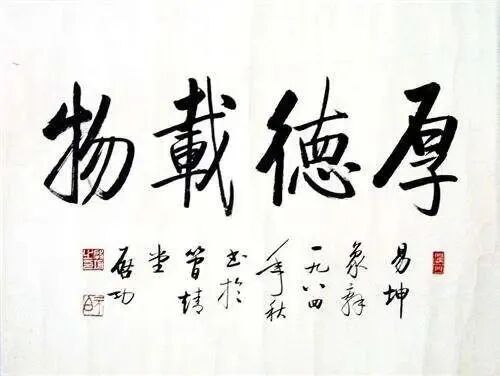 厚德載物
易坤
象辞
一九八四
年秋
书於
靖
堂
启功